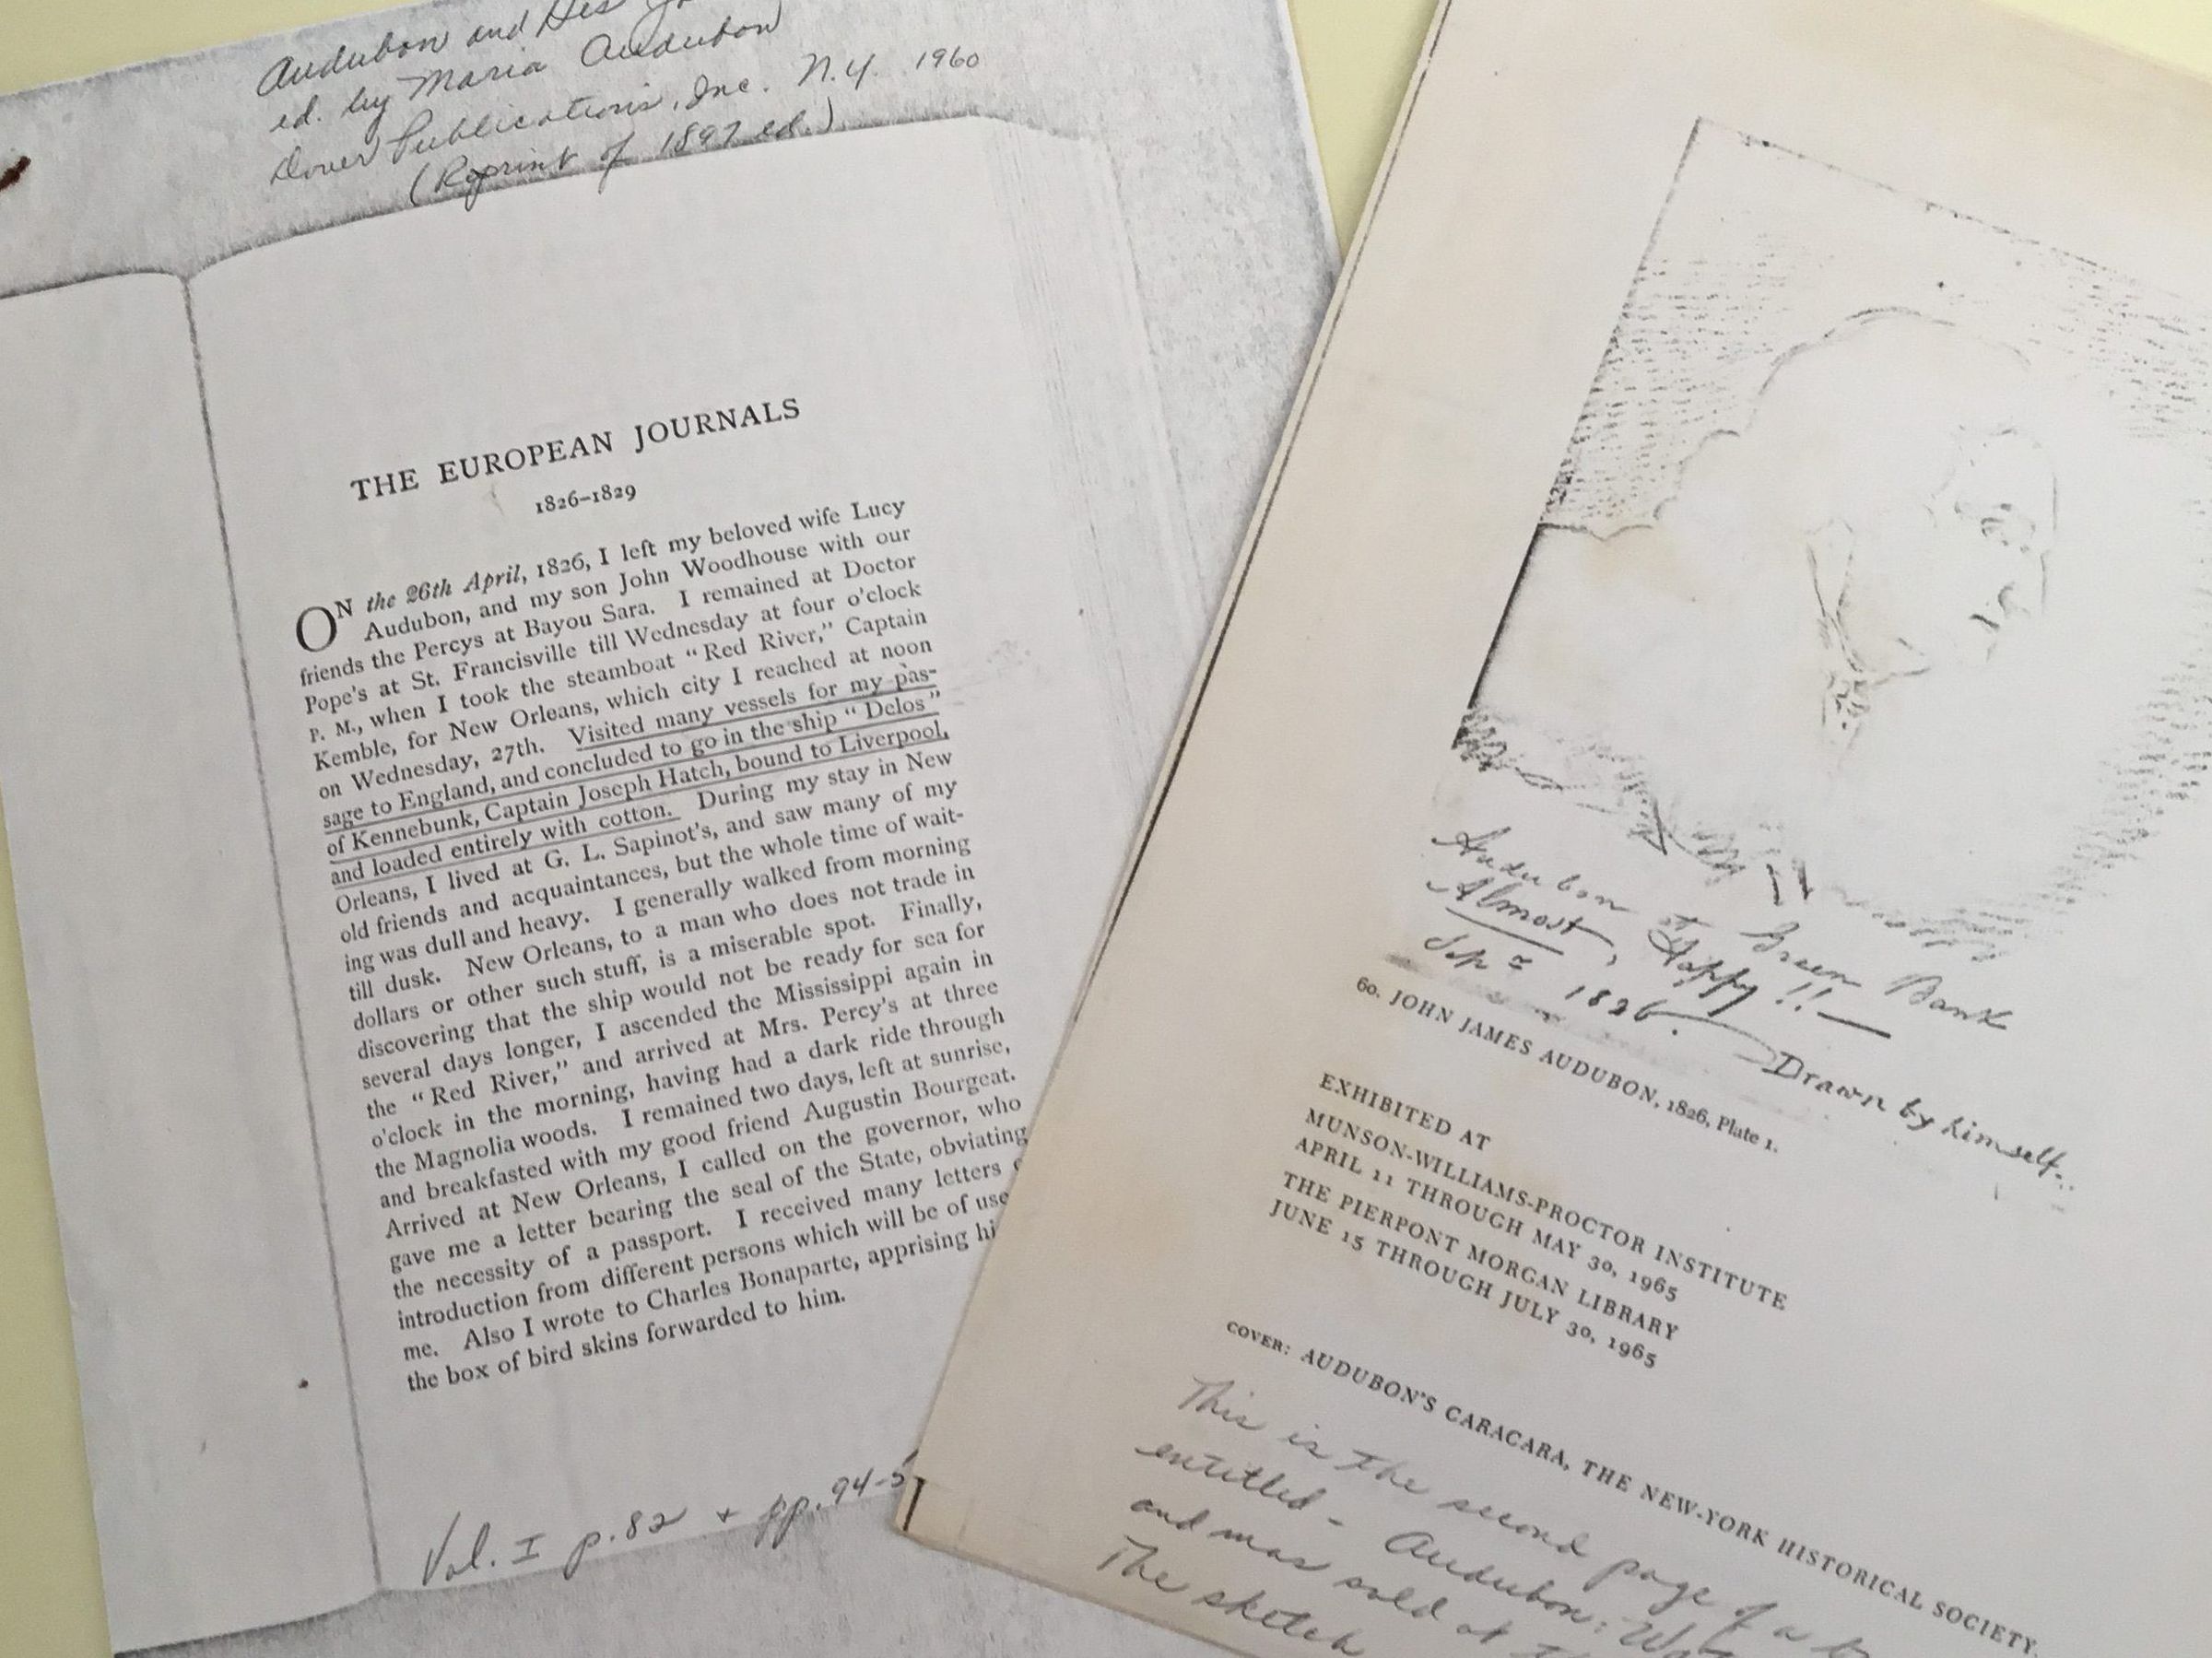 Audubon and His
ed. by Maria Audubon
Dover Publications, Inc. N.Y. 1960
(Reprint of 1897 ed.)
THE EUROPEAN JOURNALS
1826–1829
ON the 26th April, 1826, I left my beloved wife Lucy
Audubon, and my son John Woodhouse with our
friends the Percys at Bayou Sara. I remained at Doctor
Pope's at St. Francisville till Wednesday at four o'clock
P. M., when I took the steamboat "Red River," Captain
Kemble, for New Orleans, which city I reached at noon
on Wednesday, 27th. Visited many vessels for my pas-
sage to England, and concluded to go in the ship "Delos"
of Kennebunk, Captain Joseph Hatch, bound to Liverpool,
and loaded entirely with cotton. During my stay in New
Orleans, I lived at G. L. Sapinot's, and saw many of my
old friends and acquaintances, but the whole time of wait-
ing was dull and heavy. I generally walked from morning
till dusk. New Orleans, to a man who does not trade in
dollars or other such stuff, is a miserable spot. Finally,
discovering that the ship would not be ready for sea for
several days longer, I ascended the Mississippi again in
the "Red River," and arrived at Mrs. Percy's at three
o'clock in the morning, having had a dark ride through
the Magnolia woods. I remained two days, left at sunrise,
and breakfasted with my good friend Augustin Bourgeat.
Arrived at New Orleans, I called on the governor, who
gave me a letter bearing the seal of the State, obviating
the necessity of a passport. I received many letters
introduction from different persons which will be of use
me. Also I wrote to Charles Bonaparte, apprising hi
the box of bird skins forwarded to him.
Vol. I p. 82 + pp. 94-5
Audubon at Green Bank
Almost, Happy!!—
Sep 1826. Drawn by himself..
60. JOHN JAMES AUDUBON, 1826, Plate 1.
EXHIBITED AT
MUNSON-WILLIAMS-PROCTOR INSTITUTE
APRIL 11 THROUGH MAY 30, 1965
THE PIERPONT MORGAN LIBRARY
JUNE 15 THROUGH JULY 30, 1965
COVER: AUDUBON'S CARACARA, THE NEW-YORK HISTORICAL SOCIETY.
This is the second page of a
entitled - Audubon:
and was sold at
The sketch